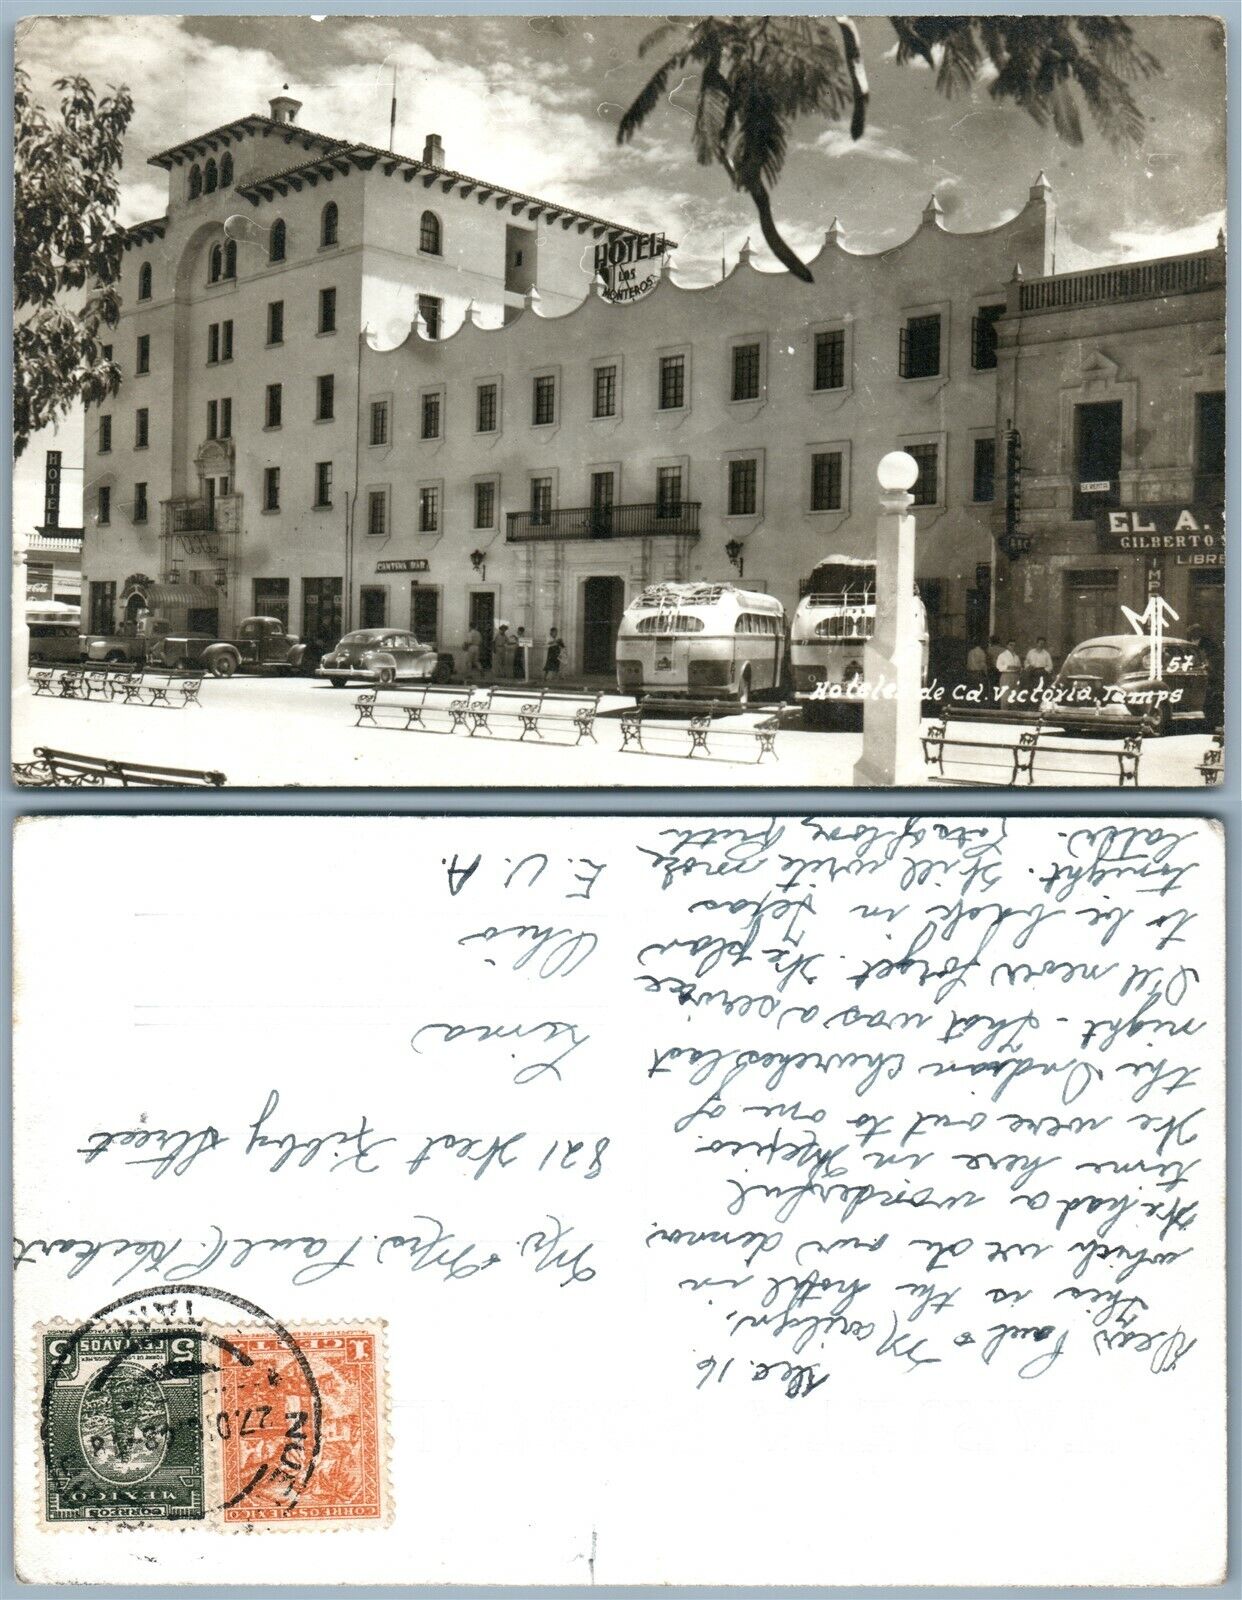 HOTEL
LOS
MONTEROS
HOTEL
CANTINA BAR
SE RENTA
EL A.
GILBERTO S
LIBRE
IMP
MF
57
Hoteles de Cd. Victoria, Tamps
Dec. 16
Dear Paul & Marilyn,
This is the hotel in
which we ate our dinner.
We had a wonderful
time here in Mexico.
We were out to one of
the Indian Churches last
night - that was a service
I'll never forget. We plan
to be back in Texas
tonight. Will write more
later. Lots of love, Ruth
Mr. & Mrs. Paul C. Heckart
821 West Kibby Street
Lima
Ohio
E. U. A.
CORREOS MEXICO
1 CENT
CORREOS
MEXICO
5 CENTAVOS 5